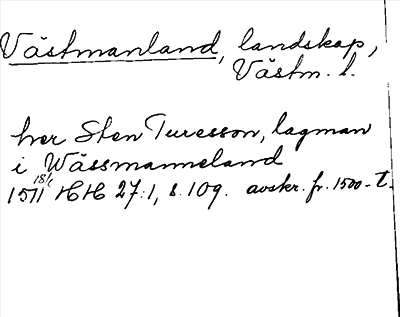 Västmanland, landskap,
Västm. l.
her Sten Turesson, lagman
i Wässmanneland
1511 18/1 HH 27:1, s. 109. avskr. fr. 1500-t.